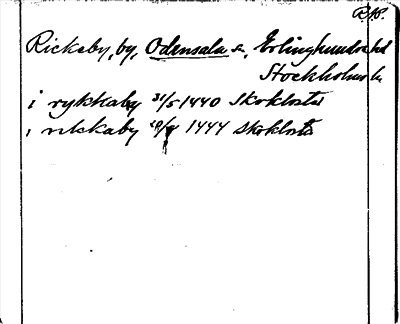 Rickeby, by, Odensala s., Erlinghundra hd
Stockholms l.
i rykkaby 31/5 1440 Skokloster
, rikkaby 1444 Skokloster